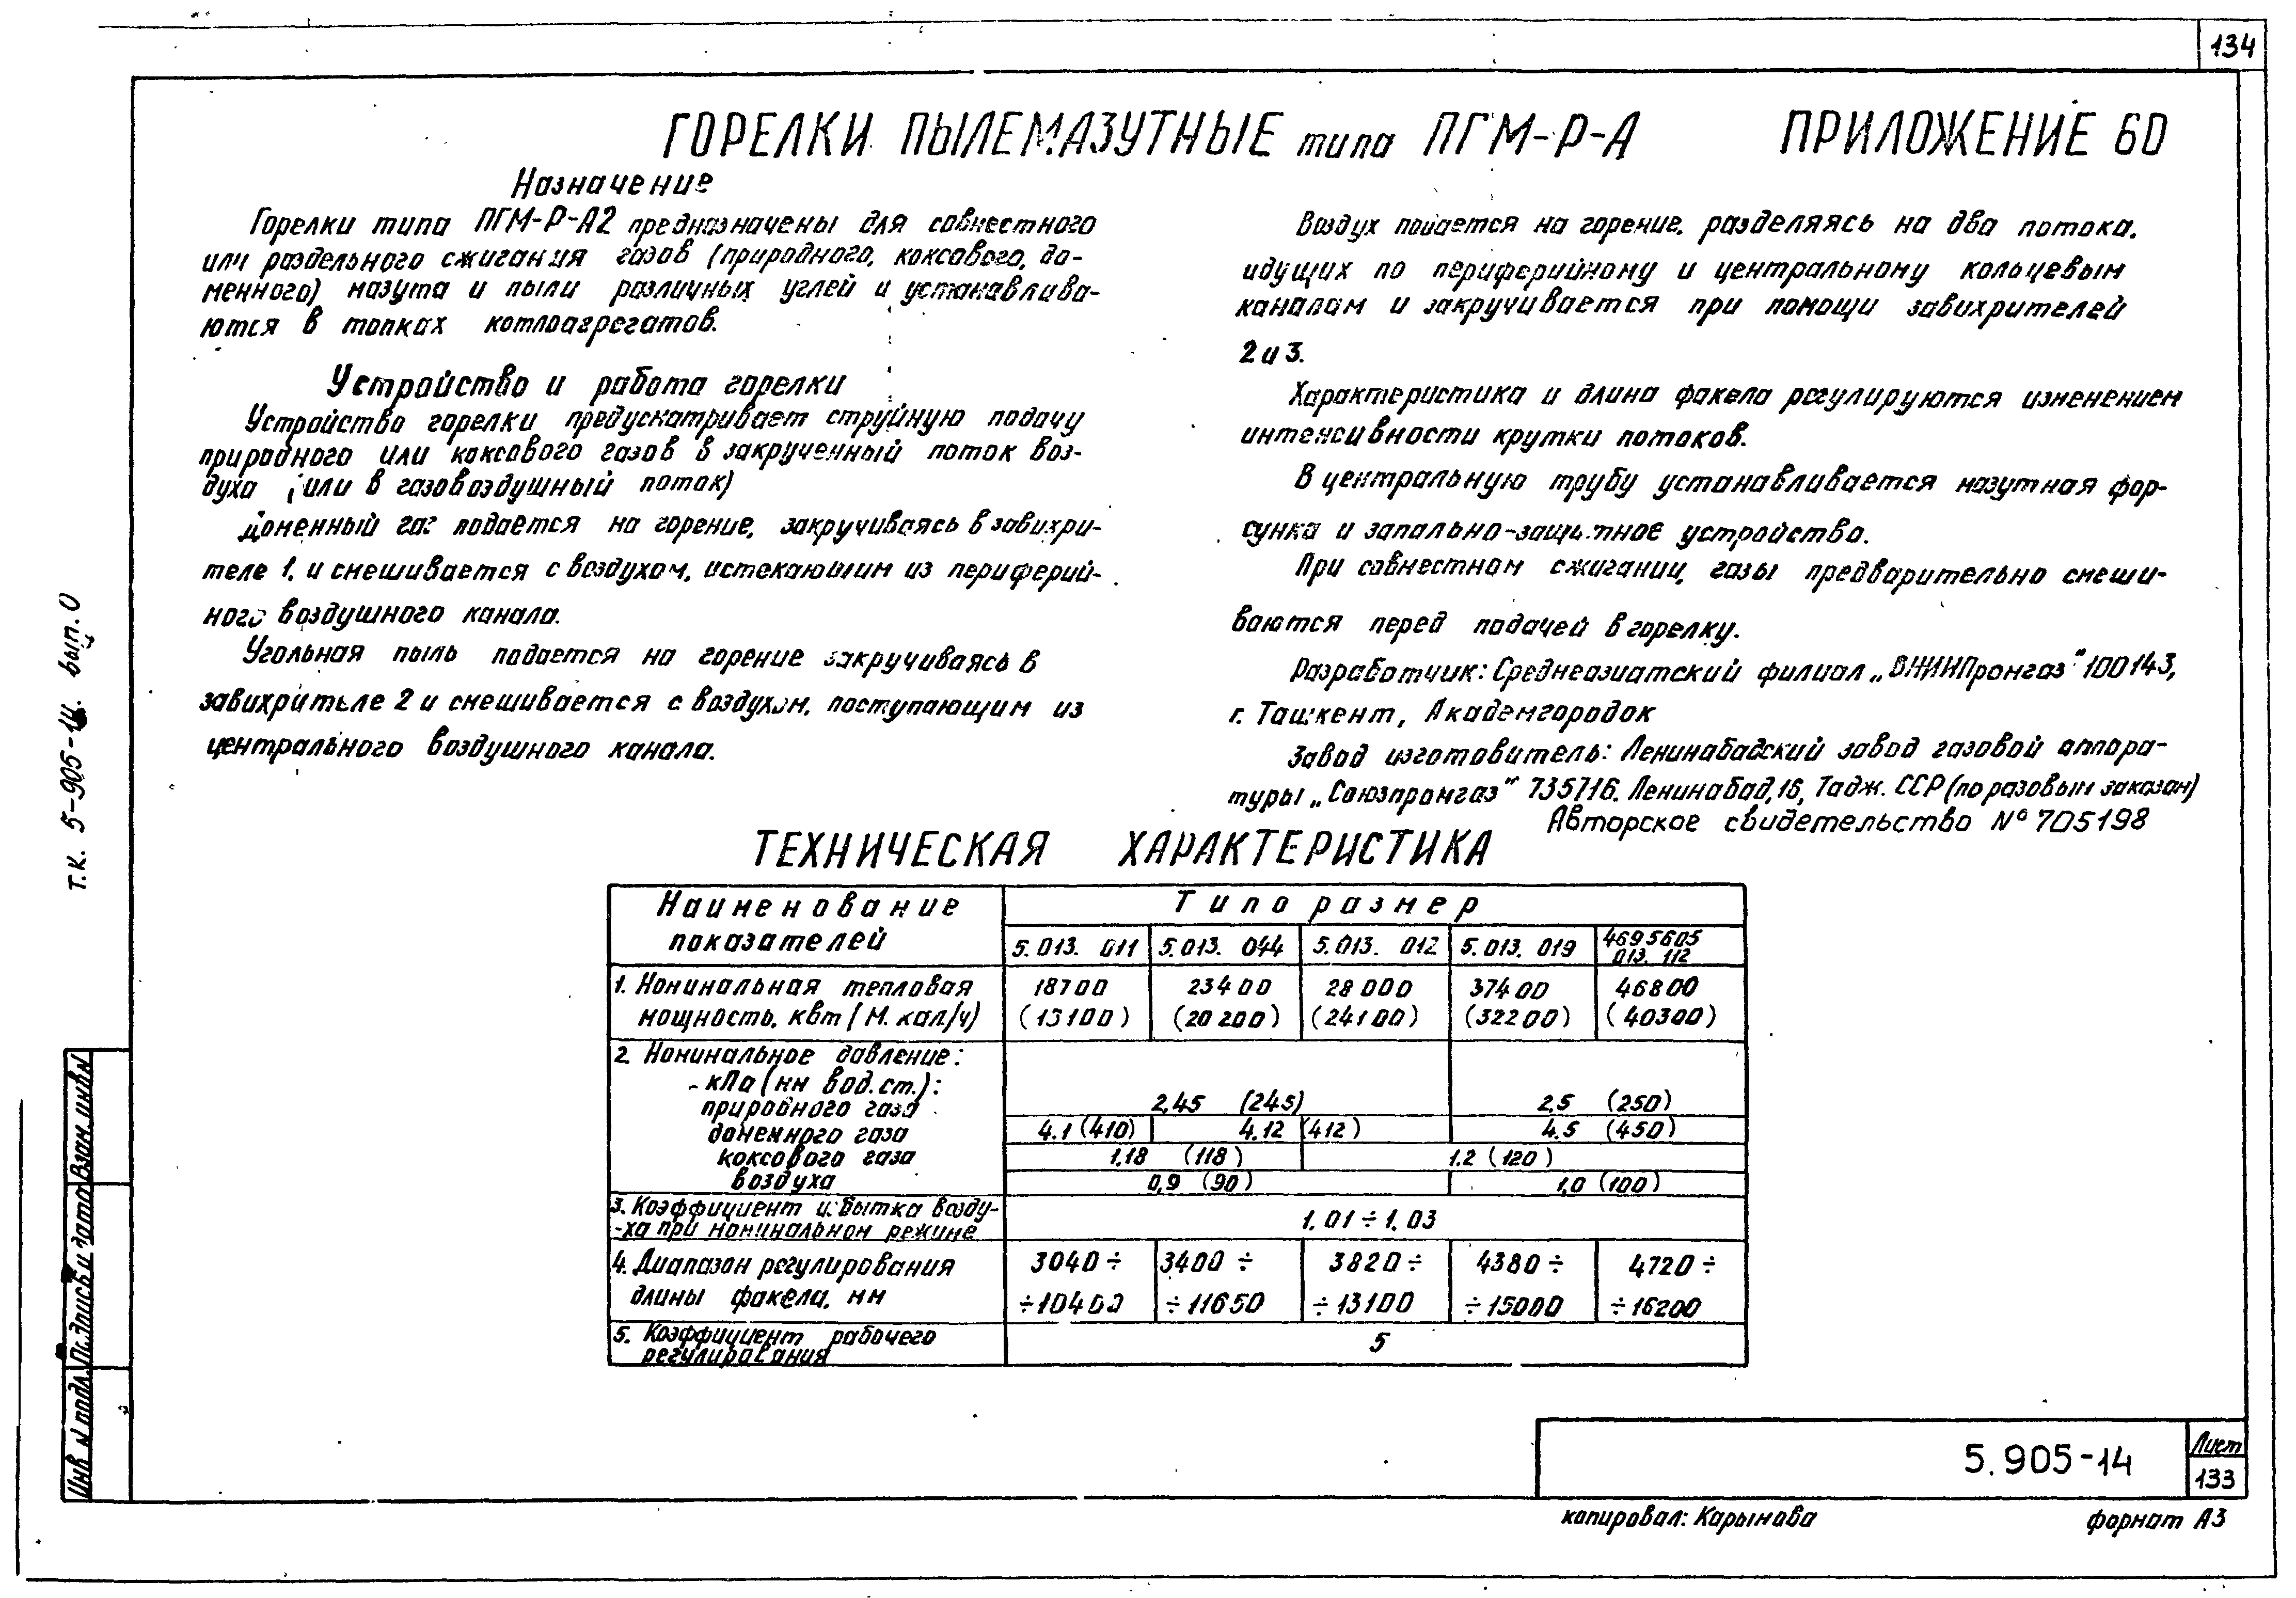 134
ГОРЕЛКИ ПЫЛЕМАЗУТНЫЕ типа ПГМ-Р-А
ПРИЛОЖЕНИЕ 60
Назначение
Горелки типа ПГМ-Р-А2 предназначены для совместного
или раздельного сжигания газов (природного, коксового, до-
менного) мазута и пыли различных углей и устанавлива-
ются в топках котлоагрегатов.
Устройство и работа горелки
Устройство горелки предусматривает струйную подачу
природного или коксового газов в закрученный поток воз-
духа (или в газовоздушный поток)
Доменный газ подается на горение, закручиваясь в завихри-
теле 1, и смешивается с воздухом, истекающим из периферий-
ного воздушного канала.
Угольная пыль подается на горение закручиваясь в
завихрителе 2 и смешивается с воздухом, поступающим из
центрального воздушного канала.
Воздух подается на горение, разделяясь на два потока,
идущих по периферийному и центральному кольцевым
каналам и закручивается при помощи завихрителей
2 и 3.
Характеристика и длина факела регулируются изменением
интенсивности крутки потоков.
В центральную трубу устанавливается мазутная фор-
сунка и запально-защитное устройство.
При совместном сжигании, газы предварительно смеши-
ваются перед подачей в горелку.
Разработчик: Среднеазиатский филиал „ВНИИПромгаз" 100143,
г. Ташкент, Академгородок
Завод изготовитель: Ленинабадский завод газовой аппара-
туры „Союзпромгаз" 735716. Ленинабад, 16, Тадж. ССР (по разовым заказам)
Авторское свидетельство № 705198
ТЕХНИЧЕСКАЯ ХАРАКТЕРИСТИКА
Наименование показателей
Типоразмер
5.013. 011 5.013. 044 5.013. 012 5.013. 019 4695605 013. 112
1. Номинальная тепловая 18700 23400 28000 37400 46800
мощность, квт (М. кал/ч) (15100) (20200) (24100) (32200) (40300)
2. Номинальное давление:
- кПа (мм вод. ст.):
природного газа 2,45 (245) 2,5 (250)
доменного газа 4.1 (410) 4.12 (412) 4.5 (450)
коксового газа 1,18 (118) 1.2 (120)
воздуха 0,9 (90) 1,0 (100)
3. Коэффициент избытка возду-
-ха при номинальном режиме 1,01÷1,03
4. Диапазон регулирования 3040÷ 3400÷ 3820÷ 4380÷ 4720÷
длины факела, мм ÷10400 ÷11650 ÷13100 ÷15000 ÷16200
5. Коэффициент рабочего
регулирования 5
т.к. 5-905-14. вып. 0
Взам. инв №
Подпись и дата
Инв N подл.
5.905-14
Лист
133
копировал: Карымова
формат А3